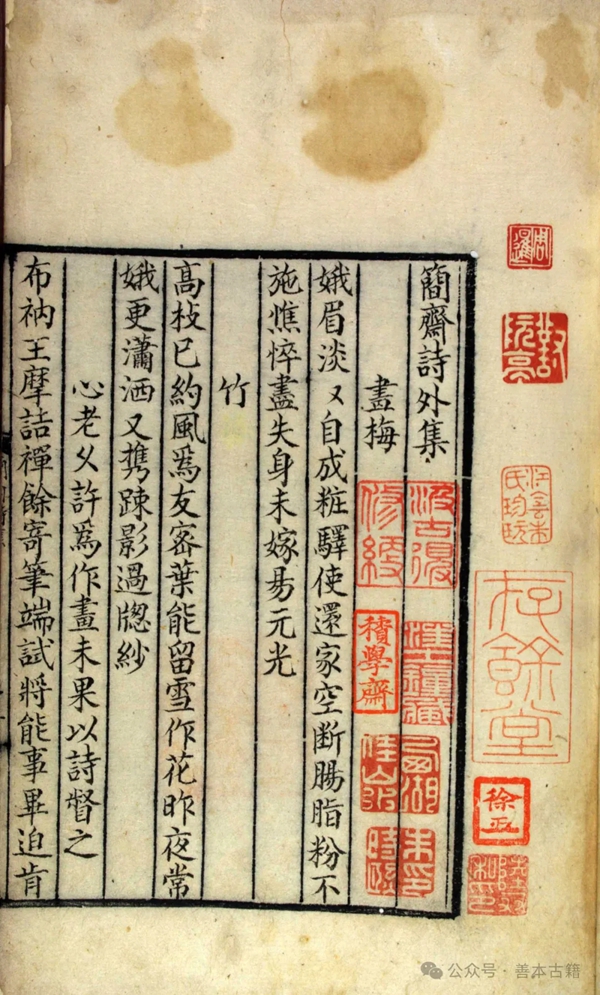 簡齋詩外集
畫梅
娥眉淡〻自成粧驛使還家空斷腸脂粉不
施憔悴盡失身未嫁易元光
竹
高枝已約風爲友密葉能留雪作花昨夜常
娥更瀟洒又携踈影過牎紗
心老久許爲作畫未果以詩督之
布衲王摩詰禪餘寄筆端試將能事畢迫肯
積學齋
存餘堂
公众号·善本古籍